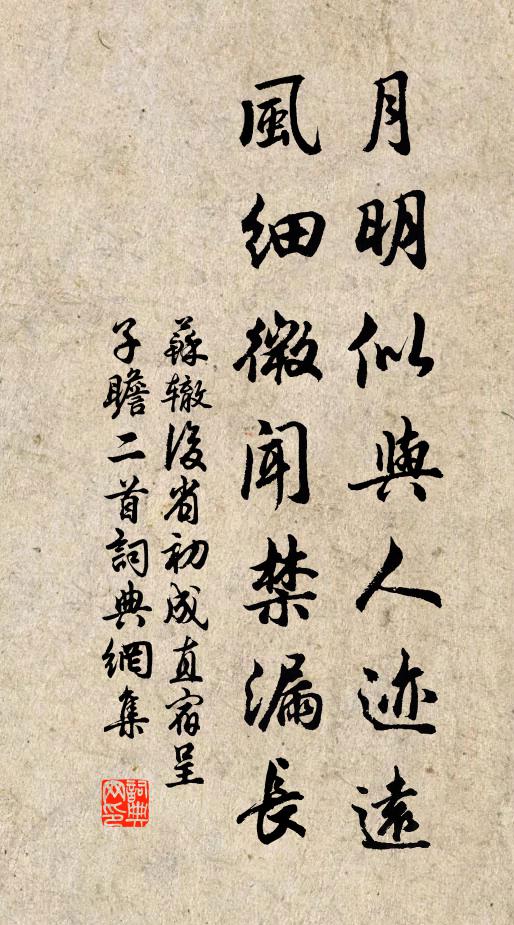 月明似與人迹遠
風細微聞禁漏長
蘇辙後省初成直宿呈
子瞻二首詞典網集
詞典网印